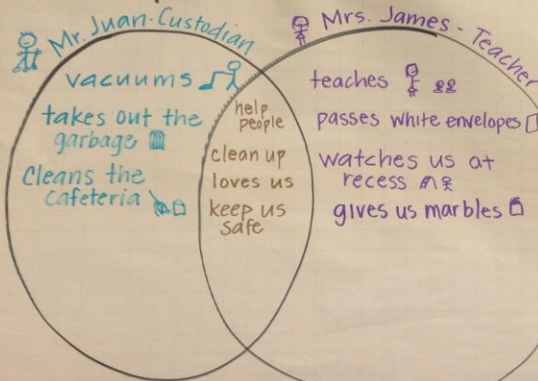 Mr. Juan-Custodian
vacuums
takes out the
garbage
Cleans the
cafeteria
help
people
clean up
loves us
keep us
safe
Mrs. James - Teacher
teaches
passes white envelopes
watches us at
recess
gives us marbles